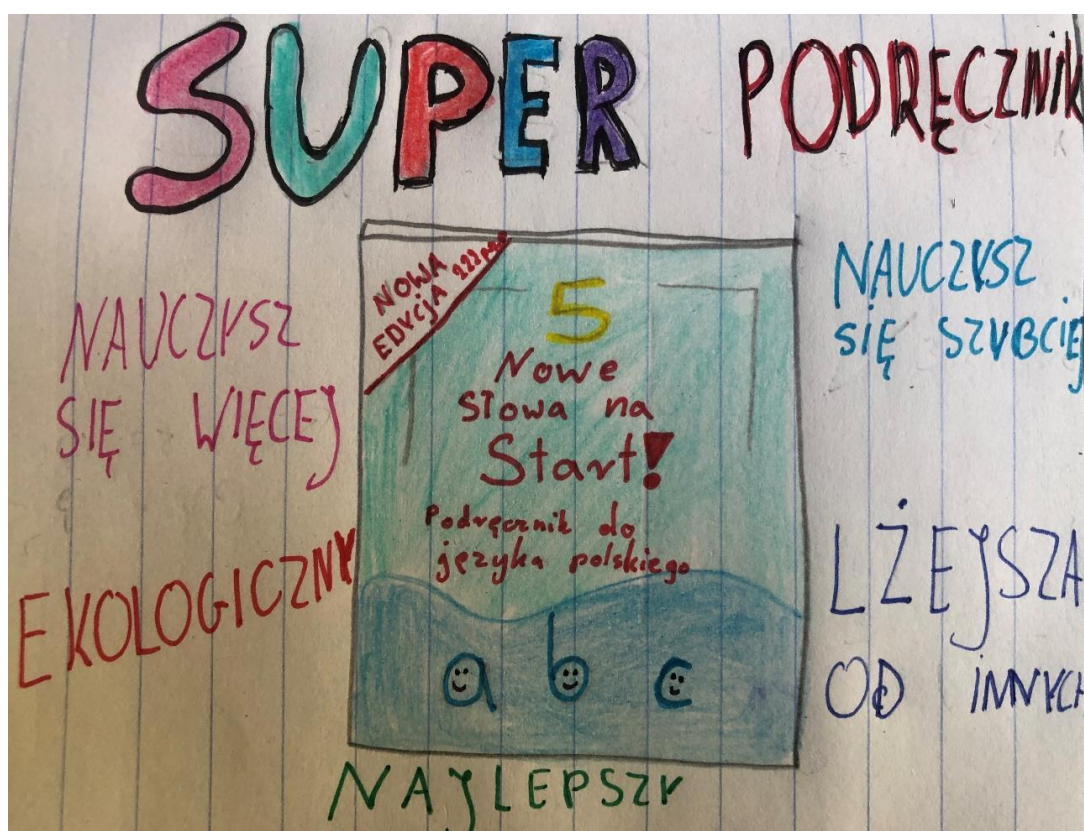 SUPER PODRĘCZNIK
NAUCZYSZ
SIĘ WIĘCEJ
EKOLOGICZNY
NOWA
EDYCJA
5
Nowe
słowa na
Start!
Podręcznik do
języka polskiego
a b c
NAUCZYSZ
SIĘ SZYBCIEJ
LŻEJSZA
OD INNYCH
NAJLEPSZY